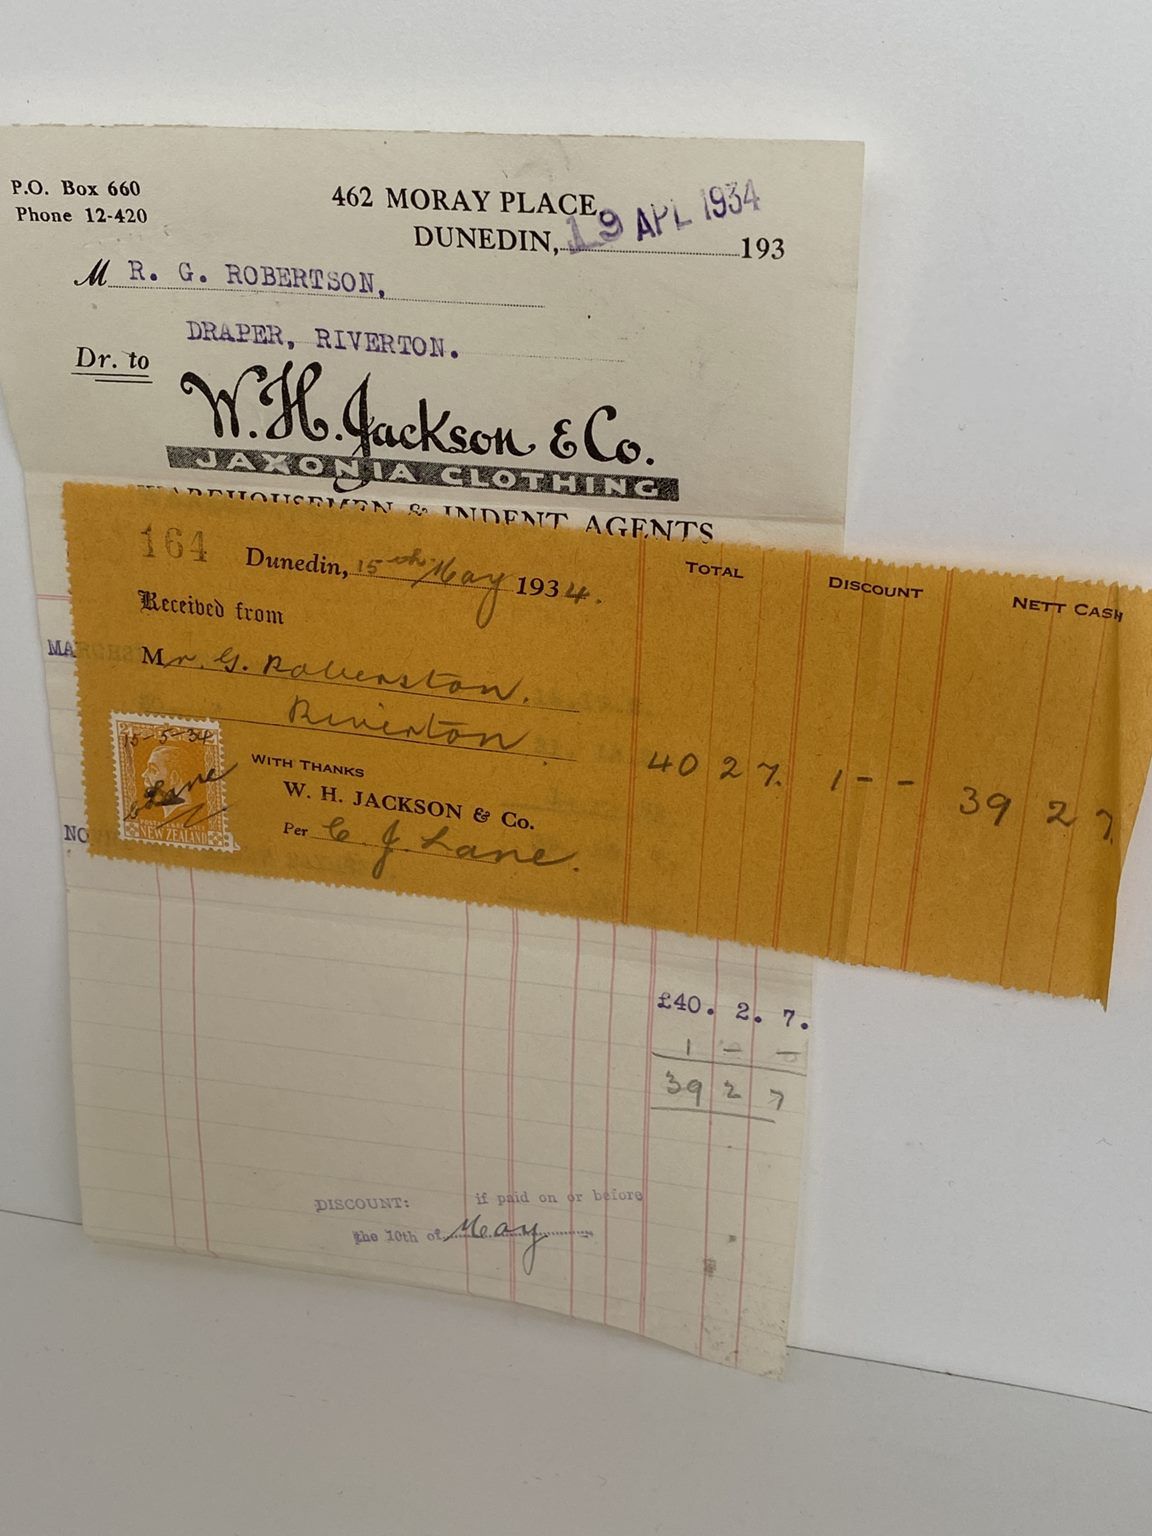 P.O. Box 660
Phone 12-420
462 MORAY PLACE,
DUNEDIN, 19 APL 1934 193
M R. G. ROBERTSON,
DRAPER, RIVERTON.
Dr. to
W. H. Jackson & Co.
JAXONIA CLOTHING
WAREHOUSEMEN & INDENT AGENTS
164
Dunedin, 15th May 1934.
TOTAL DISCOUNT NETT CASH
Received from
Mr. G. Roberston.
Riverton
40 2 7. 1 - - 39 2 7.
15-5-34
Lane
NEW ZEALAND
WITH THANKS
W. H. JACKSON & Co.
Per C. J. Lane.
£40. 2. 7.
1 - -
39 2 7
DISCOUNT: if paid on or before
the 10th of May